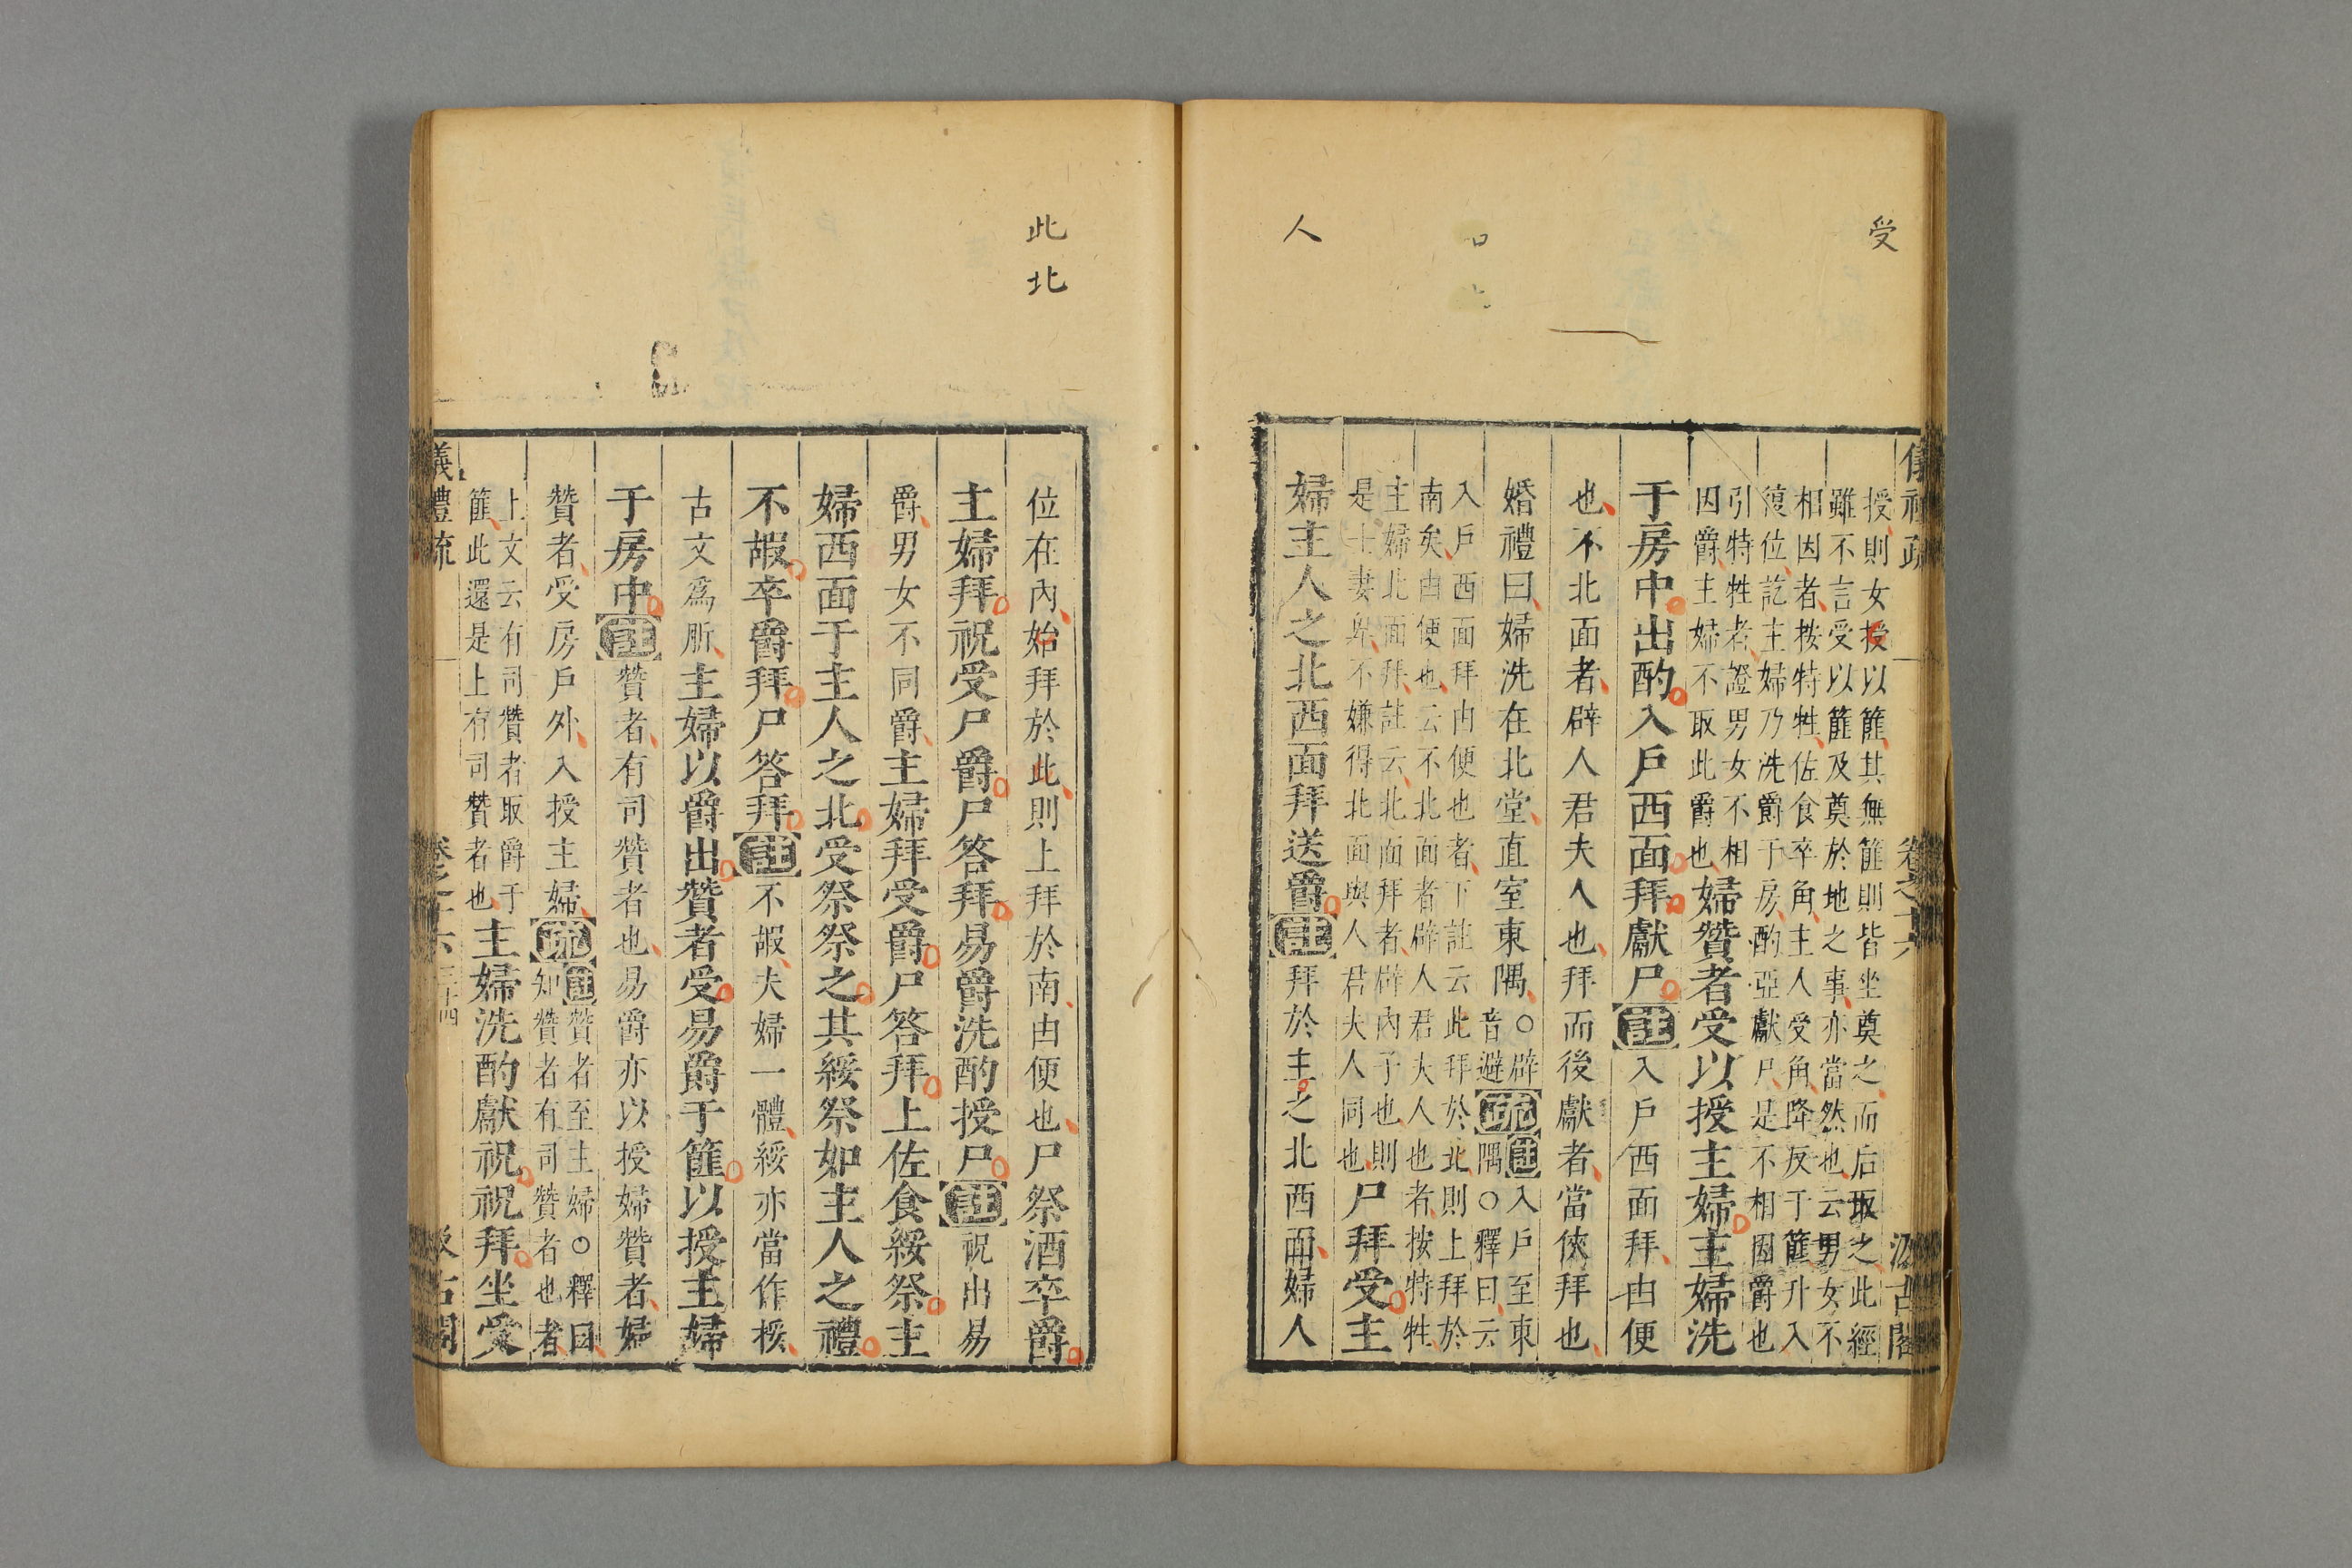 受
人
儀禮疏 卷之十六 汲古閣
授則女授以篚其無篚則皆坐奠之而后取之此經
雖不言受以篚及奠於地之事亦當然也云男女不
相因者按特牲佐食卒角主人受角降反于篚升入
復位訖主婦乃洗爵于房酌亞獻尸是不相因爵也
引特牲者證男女不相
因爵主婦不取此爵也
婦贊者受以授主婦主婦洗
于房中出酌入戶西面拜獻尸註入戶西面拜由便
也不北面者辟人君夫人也拜而後獻者當俠拜也
婚禮曰婦洗在北堂直室東隅○辟音避疏註入戶至東
隅○釋曰云
入戶西面拜由便也者下註云此拜於北則上拜於
南矣由便也云不北面者辟人君夫人也者按特牲
主婦北面拜註云北面拜者辟內子也則
是士妻卑不嫌得北面與人君夫人同也
尸拜受主
婦主人之北西面拜送爵註拜於主之北西面婦人
此北
位在內始拜於此則上拜於南由便也尸祭酒卒爵
主婦拜祝受尸爵尸答拜易爵洗酌授尸註祝出易
爵男女不同爵主婦拜受爵尸答拜上佐食綏祭主
婦西面于主人之北受祭祭之其綏祭如主人之禮
不嘏卒爵拜尸答拜註不嘏夫婦一體綏亦當作挼
古文為肵主婦以爵出贊者受易爵于篚以授主婦
于房中註贊者有司贊者也易爵亦以授婦贊者婦
贊者受房戶外入授主婦疏註贊者至主婦○釋曰
知贊者有司贊者也者
上文云有司贊者取爵于
篚此還是上有司贊者也
主婦洗酌獻祝祝拜坐受
儀禮疏 卷之十六 三十四 汲古閣